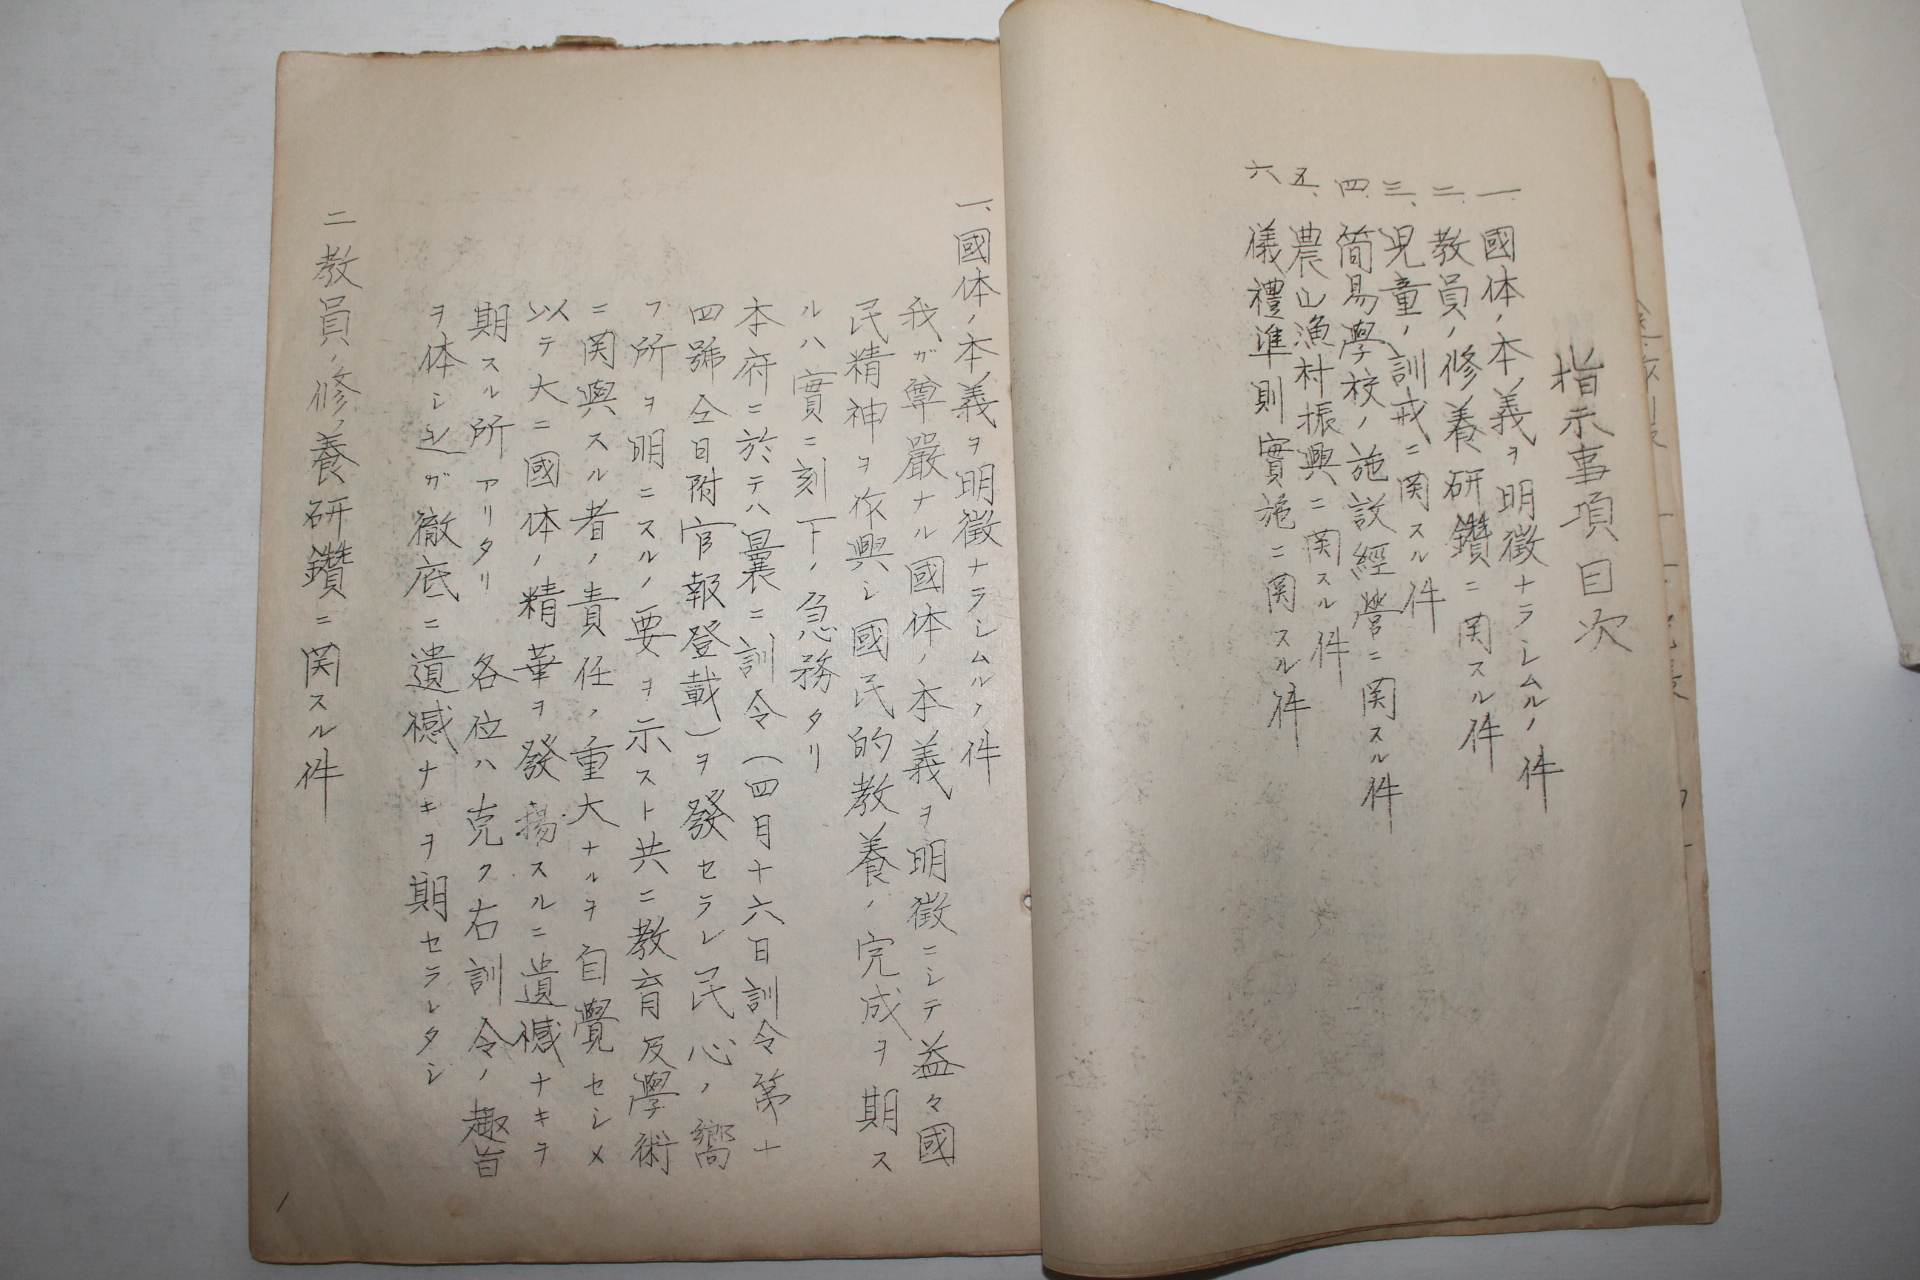 指示事項目次
一、國体ノ本義ヲ明徴ナラシムルノ件
二、教員ノ修養研鑽ニ関スル件
三、児童ノ訓戒ニ関スル件
四、簡易學校ノ施設經営ニ関スル件
五、農山漁村振興ニ関スル件
六 儀禮準則實施ニ関スル件
一、國体ノ本義ヲ明徴ナラシムルノ件
我ガ尊嚴ナル國体ノ本義ヲ明徴ニシテ益々國
民精神ヲ作興シ國民的教養ノ完成ヲ期ス
ルハ實ニ刻下ノ急務タリ
本府ニ於テハ曩ニ訓令(四月十六日訓令第十
四號仝日附官報登載)ヲ發セラレ民心ノ嚮
フ所ヲ明ニスルノ要ヲ示スト共ニ教育及學術
ニ関與スル者ノ責任ノ重大ナルヲ自覺セシメ
以テ大ニ國体ノ精華ヲ發揚スルニ遺憾ナキヲ
期スル所アリタリ 各位ハ克ク右訓令ノ趣旨
ヲ体シ之ガ徹底ニ遺憾ナキヲ期セラレタシ
二 教員ノ修養研鑽ニ関スル件
1